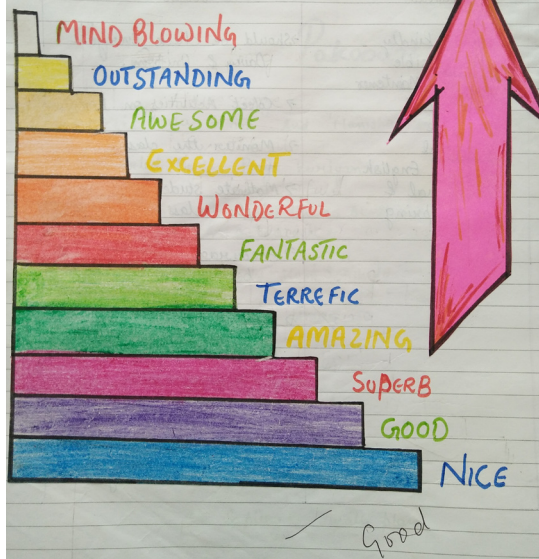 MIND BLOWING
OUTSTANDING
AWESOME
EXCELLENT
WONDERFUL
FANTASTIC
TERREFIC
AMAZING
SUPERB
GOOD
NICE
Good